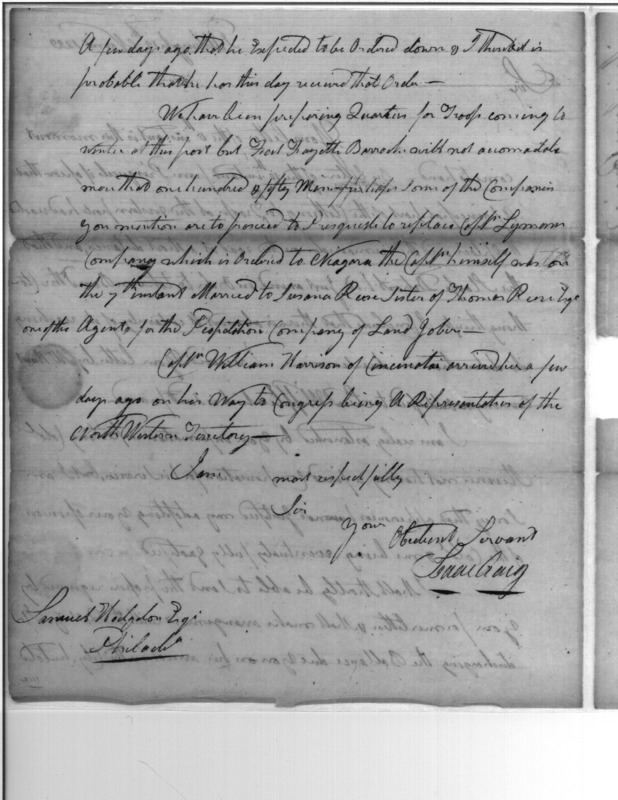 A few days ago, that he Expected to be Ordered down & I think it is
probable that he has this day received that Order —
We have been preparing Quarters for Troops coming to
winter at this post but Fort Fayette Barracks will not accomodate
more that one hundred & fifty Men — perhaps some of the Companies
you mention are to proceed to Presquile to replace Captn. Lymans
Company which is Ordered to Niagara the Captn. himself was on
the 7th instant Married to Susana Reese Sister of Thomas Reese Esqr
one of the Agents for the Population Company of Land Jobers —
Captn William Harrison of Cincinatai arrived here a few
days ago on his Way to Congress being A Representative of the
North Western Territory —
I am most respectfully
Sir
Your Obedient Servant
Isaac Craig
Samuel Hodgdon Esqr
Philada